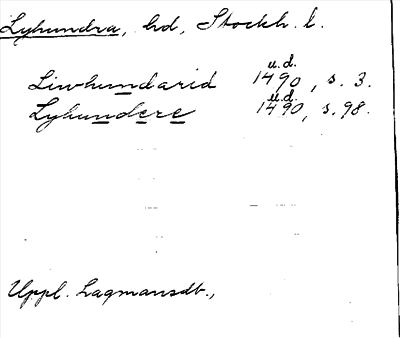 Lyhundra, hd, Stockh. l.
Liwhundarid u.d. 1490, s. 3.
Lyhundere u.d. 1490, s. 98.
Uppl. Lagmansdb.,